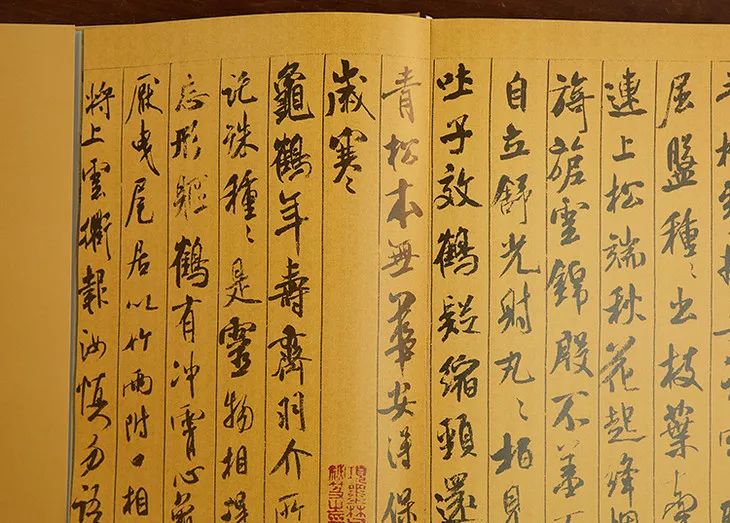 屈盤種〻出枝葉牽
連上松端秋花起絳烟
旖旎雲錦殷不羞不
自立舒光射丸〻柏見
吐子效鶴疑縮頸還
青松本無華安得保
歲寒〻
龜鶴年壽齊羽介所
託殊種〻是靈物相得
忘形軀鶴有沖霄心龜
厭曳尾居以竹兩附口相
將上雲衢報汝慎勿語